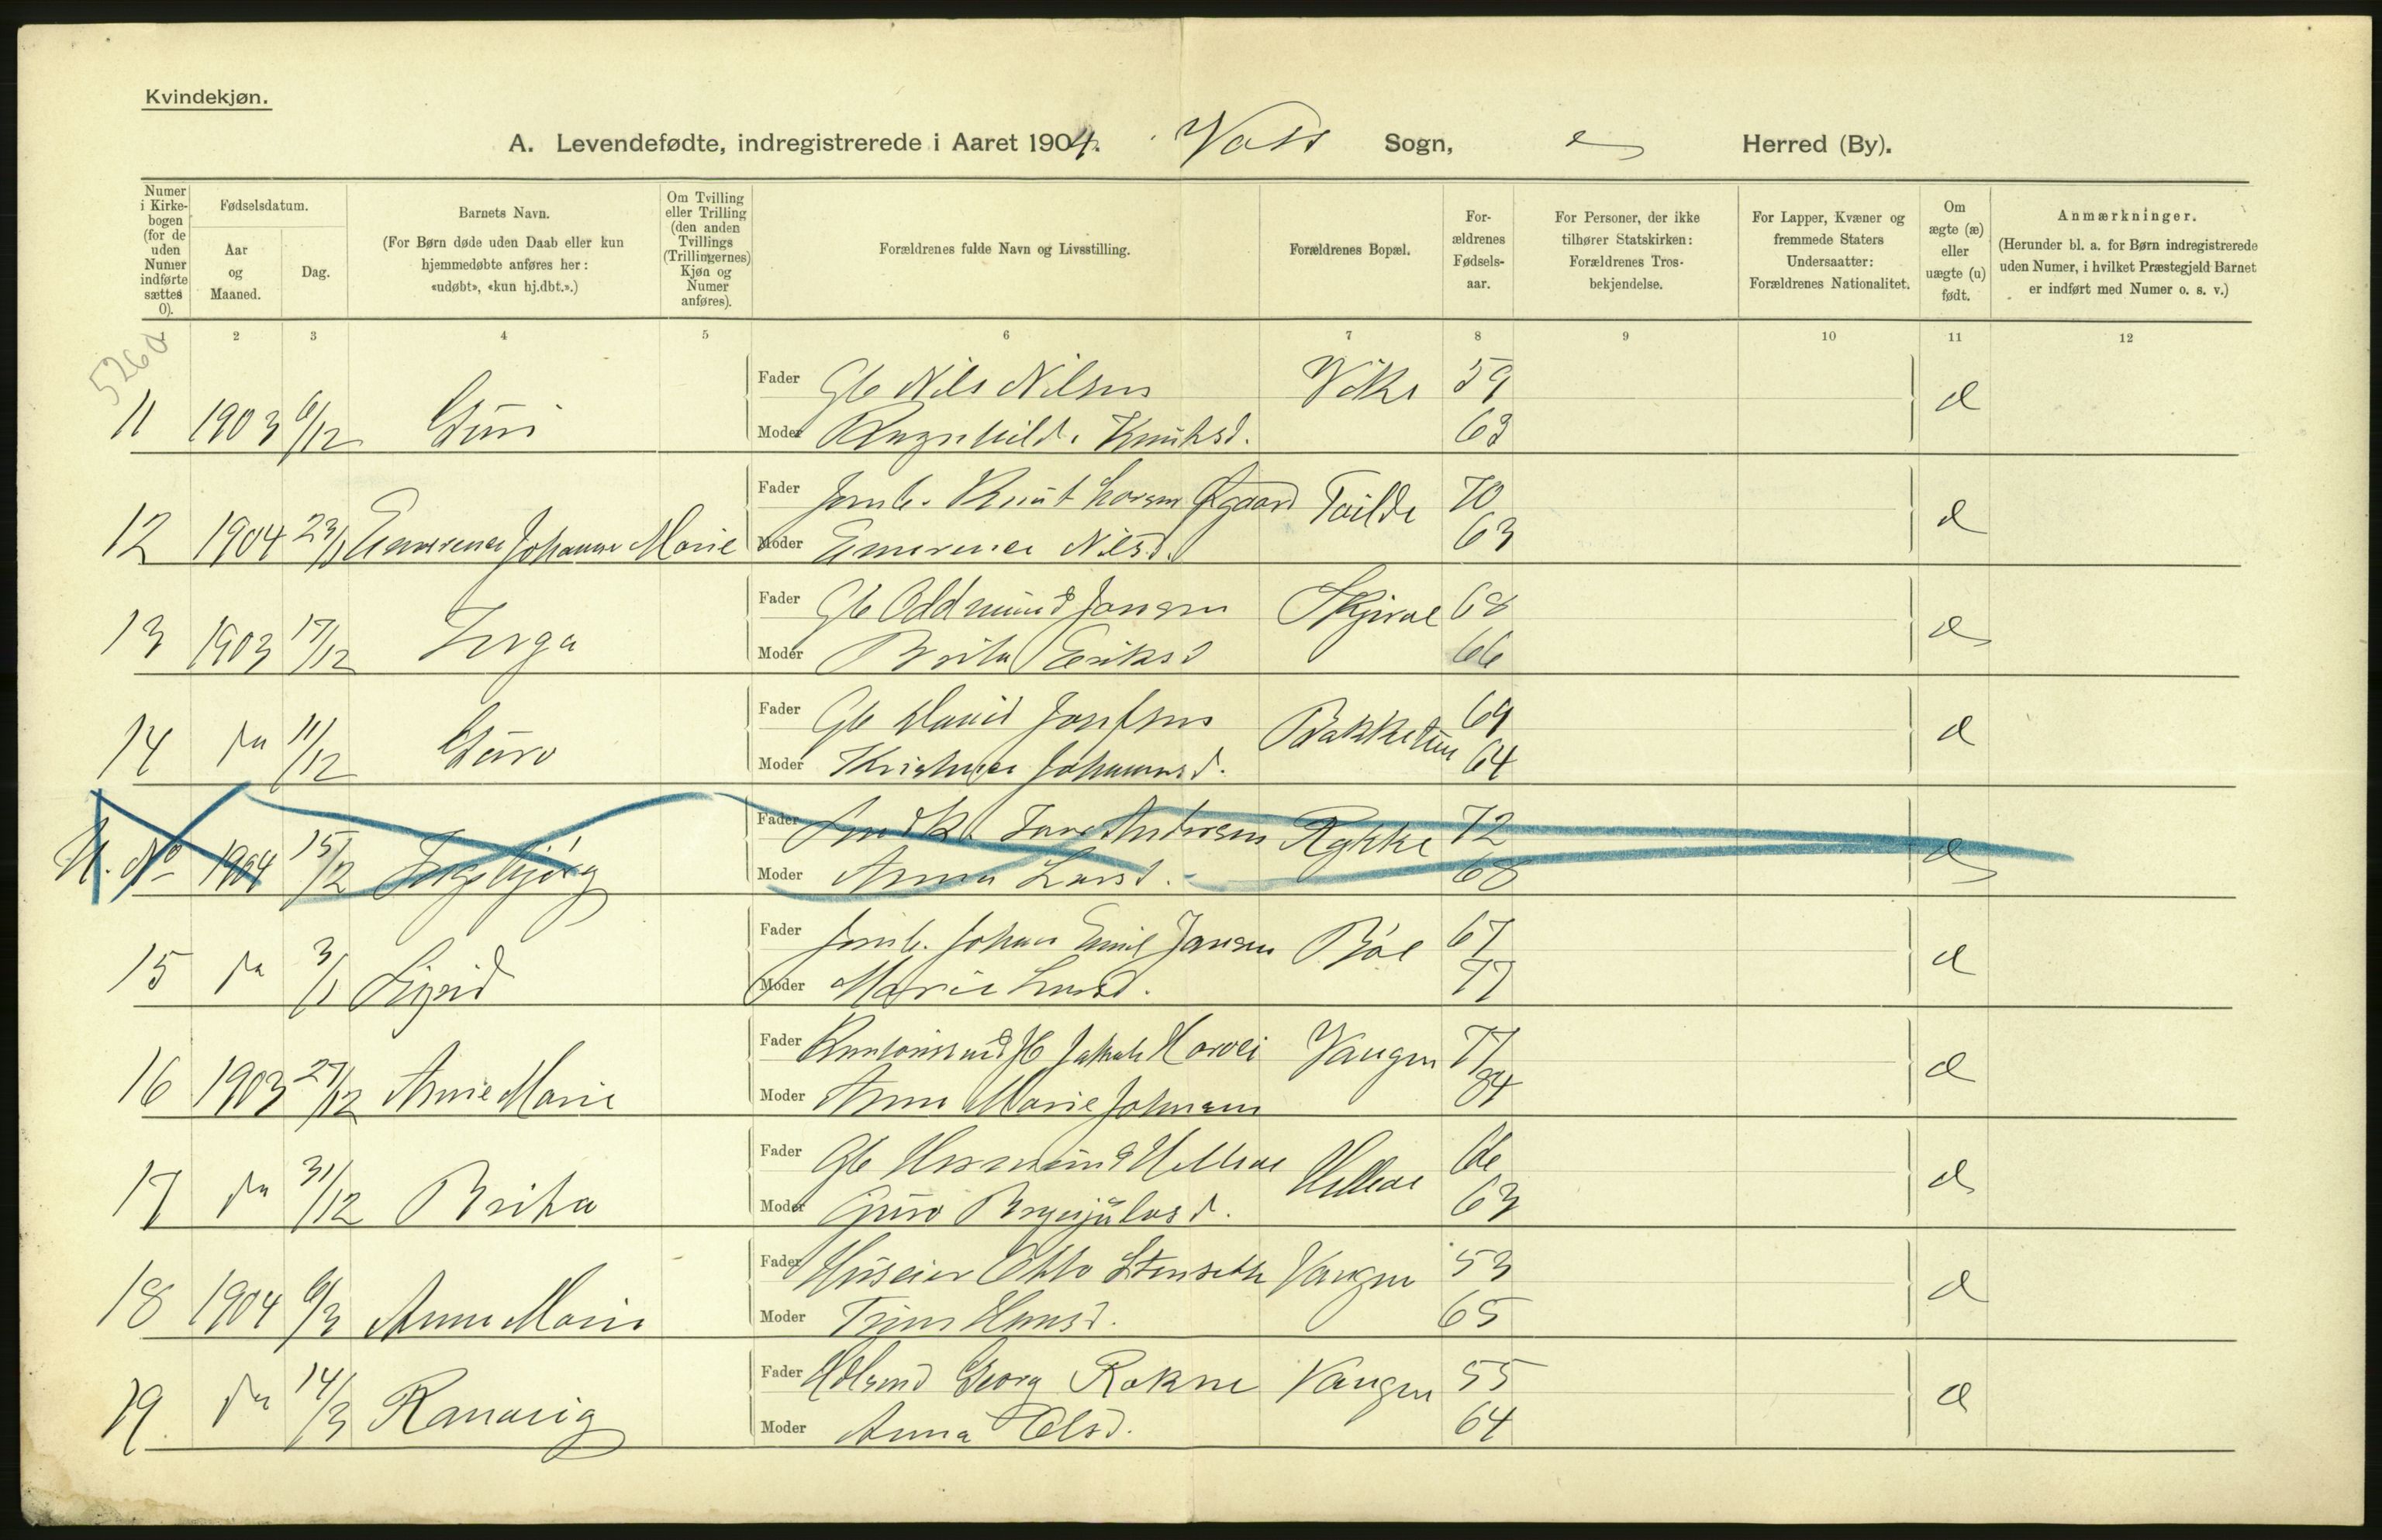 Kvindekjøn.
A. Levendefødte, indregistrerede i Aaret 1904. Voss Sogn, Herred (By).
Numer i Kirkebogen (for de uden Numer indførte sættes 0).
Fødselsdatum.
Aar og Maaned.
Dag.
Barnets Navn.
(For Børn døde uden Daab eller kun hjemmedøbte anføres her: «udøbt», «kun hj.dbt.».)
Om Tvilling eller Trilling (den anden Tvillings (Trillingernes) Kjøn og Numer anføres).
Forældrenes fulde Navn og Livsstilling.
Forældrenes Bopæl.
Forældrenes Fødselsaar.
For Personer, der ikke tilhører Statskirken: Forældrenes Trosbekjendelse.
For Lapper, Kvæner og fremmede Staters Undersaatter: Forældrenes Nationalitet.
Om ægte (æ) eller uægte (u) født.
Anmærkninger.
(Herunder bl. a. for Børn indregistrerede uden Numer, i hvilket Præstegjeld Barnet er indført med Numer o. s. v.)
2 3 4 5 6 7 8 9 10 11 12
526a
Fader Gb Nils Nilsen Vike 59
11 1903 6/12 Guri Moder Ragnhild Knutsd. 63 æ
Fader Knut Larsen Øgaard Tvilde 70
12 1904 23/1 Emerence Johanne Marie Moder Emerence Nilsd. 63 æ
Fader Gb Oddmund Jonsen Skjerve 68
13 1903 17/12 Inga Moder Brita Eriksd 66 æ
Fader Gb David Josefsen Bakketun 69
14 da 11/12 Guro Moder Kristence Johannesd. 64 æ
Fader Lars Andersen Rokke 72
U. No 1904 15/2 Ingebjørg Moder Anna Larsd. 68 æ
Fader Johan Emil Jansen Bøe 67
15 da 3/1 Sigrid Moder Marie Larsd. 77 æ
Fader Jakob Horvei Vangen 77
16 1903 27/12 Anne Marie Moder Anne Marie Johnsen 84 æ
Fader Gb Hermund Hellene Hellene 66
17 da 31/12 Brita Moder Guro Brynjulvsd. 63 æ
Fader Huseier Otto Stenseth Vangen 53
18 1904 6/3 Anne Marie Moder Trine Hansd. 65 æ
Fader Georg Rokne Vangen 55
19 da 14/3 Ranveig Moder Anna Olsd. 64 æ